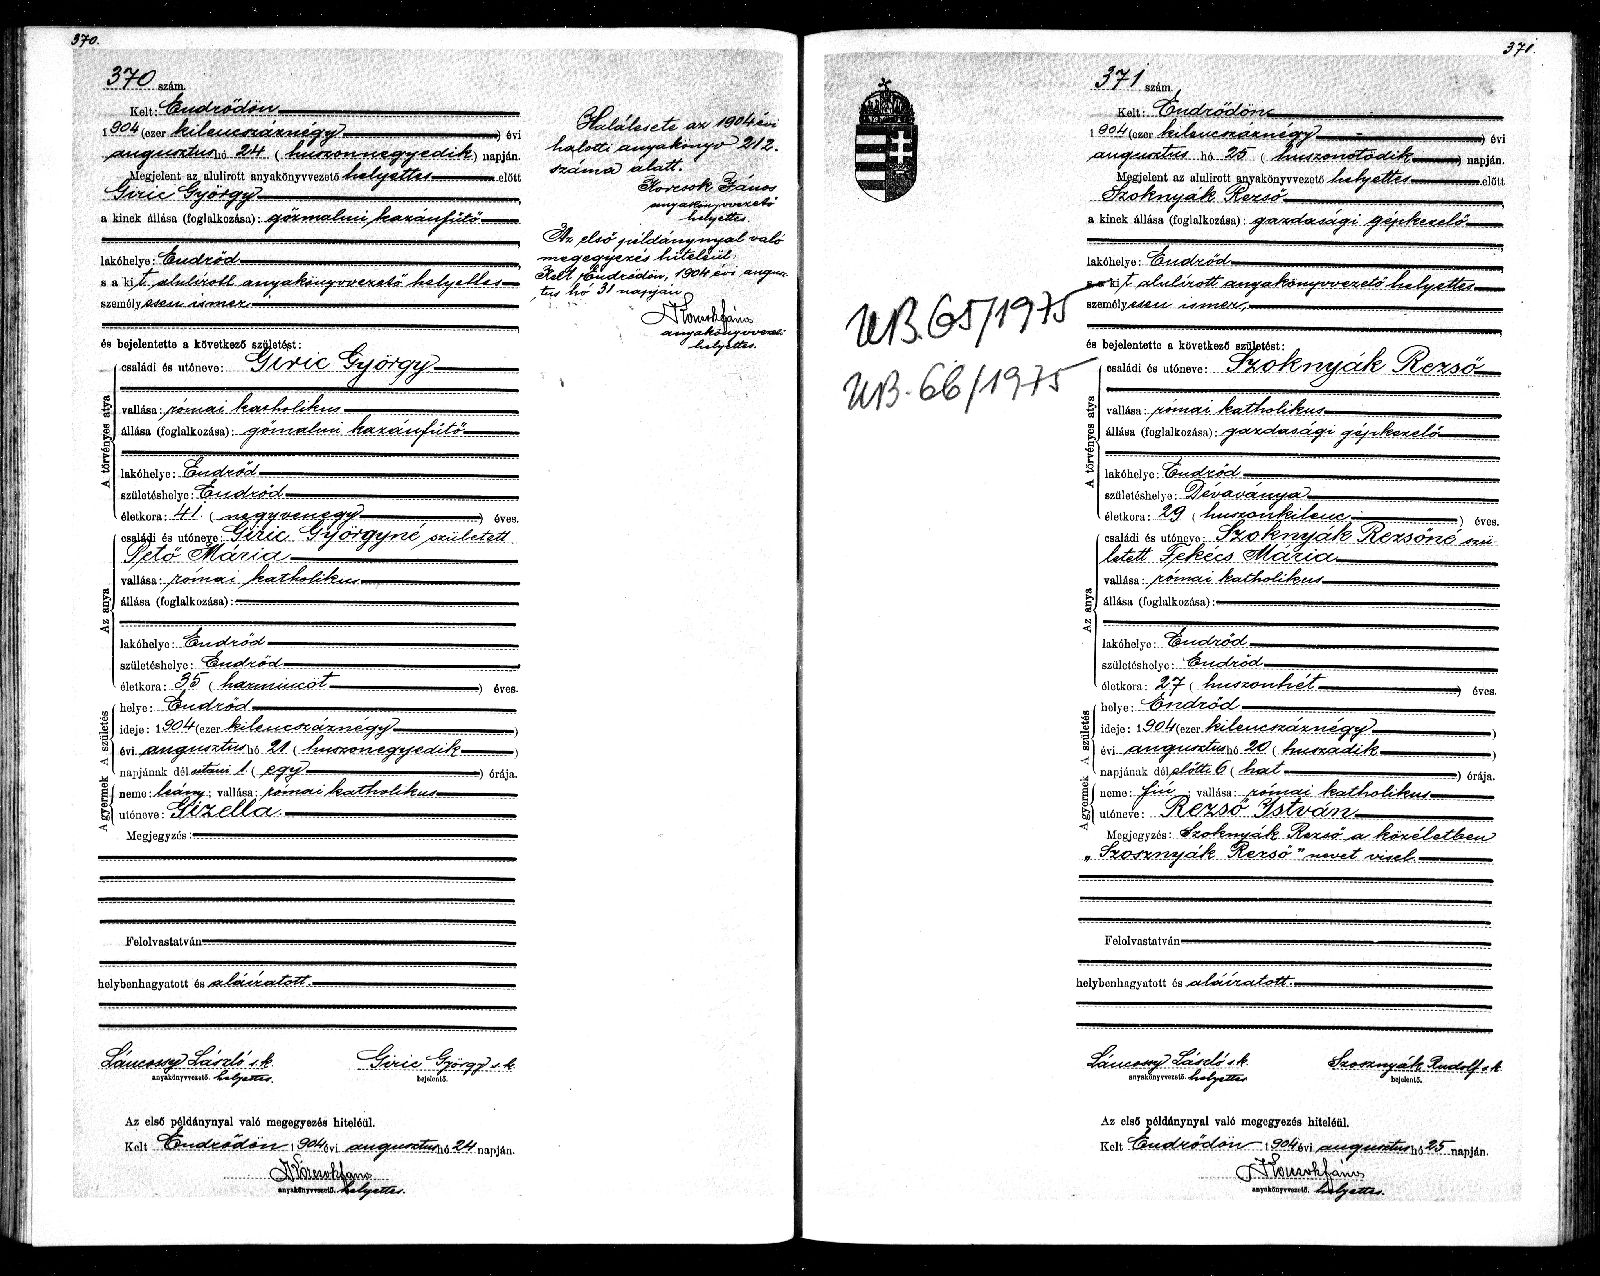 370.
370 szám.
Kelt: Endrődön
1904 (ezer kilencszáznégy) évi
augusztus hó 24 (huszonnegyedik) napján.
Megjelent az alulirott anyakönyvvezető helyettes előtt
Giric György,
a kinek állása (foglalkozása): gőzmalmi kazánfűtő
lakóhelye: Endrőd
s a kit alulirott anyakönyvvezető helyettes
személyesen ismer,
és bejelentette a következő születést:
A törvényes atya
családi és utóneve: Giric György
vallása: római katholikus
állása (foglalkozása): gőmalmi kazánfűtő
lakóhelye: Endrőd
születéshelye: Endrőd
életkora: 41 (negyvenegy) éves.
Az anya
családi és utóneve: Giric Györgyné született
Pető Mária
vallása: római katholikus
állása (foglalkozása):
lakóhelye: Endrőd
születéshelye: Endrőd
életkora: 35 (harmincöt) éves.
A születés
helye: Endrőd
ideje: 1904 (ezer kilencszáznégy)
évi augusztus hó 21 (huszonegyedik)
napjának délutáni 1 (egy) órája.
A gyermek
neme: leány; vallása: római katholikus
utóneve: Gizella.
Megjegyzés:
Felolvastatván
helybenhagyatott és aláíratott.
Láncossy László s k
anyakönyvvezető. helyettes.
Giric György s. k
bejelentő.
Az első példánynyal való megegyezés hiteléül.
Kelt Endrődön 1904 évi augusztus hó 24 napján.
Korcsok János
anyakönyvvezető. helyettes.
Halálesete az 1904 évi
halotti anyakönyv 212.
száma alatt.
Korcsok János
anyakönyvvezető
helyettes.
Az első példánynyal való
megegyezés hiteléül.
Kelt Endrődön, 1904 évi augusz-
tus hó 31 napján
Korcsok János
anyakönyvvezető
helyettes.
371.
371 szám.
Kelt: Endrődön
1904 (ezer kilencszáznégy) évi
augusztus hó 25 (huszonötödik) napján.
Megjelent az alulirott anyakönyvvezető helyettes előtt
Szoknyák Rezső,
a kinek állása (foglalkozása): gazdasági gépkezelő
lakóhelye: Endrőd
s a kit alulirott anyakönyvvezető helyettes
személyesen ismer,
és bejelentette a következő születést:
A törvényes atya
családi és utóneve: Szoknyák Rezső
vallása: római katholikus
állása (foglalkozása): gazdasági gépkezelő
lakóhelye: Endrőd
születéshelye: Dévaványa
életkora: 29 (huszonkilenc) éves.
Az anya
családi és utóneve: Szoknyák Rezsőné szü
letett Fekécs Mária
vallása: római katholikus
állása (foglalkozása):
lakóhelye: Endrőd
születéshelye: Endrőd
életkora: 27 (huszonhét) éves.
A születés
helye: Endrőd
ideje: 1904 (ezer kilencszáznégy)
évi augusztus hó 20 (huszadik)
napjának délelőtti 6 (hat) órája.
A gyermek
neme: fiú; vallása: római katholikus
utóneve: Rezső István
Megjegyzés: Szoknyák Rezső a közéletben
„Szosznyák Rezső" nevet visel.
Felolvastatván
helybenhagyatott és aláíratott.
Láncossy László s k
anyakönyvvezető. helyettes
Szosznyák Rudolf s. k
bejelentő.
Az első példánynyal való megegyezés hiteléül.
Kelt Endrődön 1904 évi augusztus hó 25 napján.
Korcsok János
anyakönyvvezető. helyettes.
UB. 65/1975
UB. 66/1975